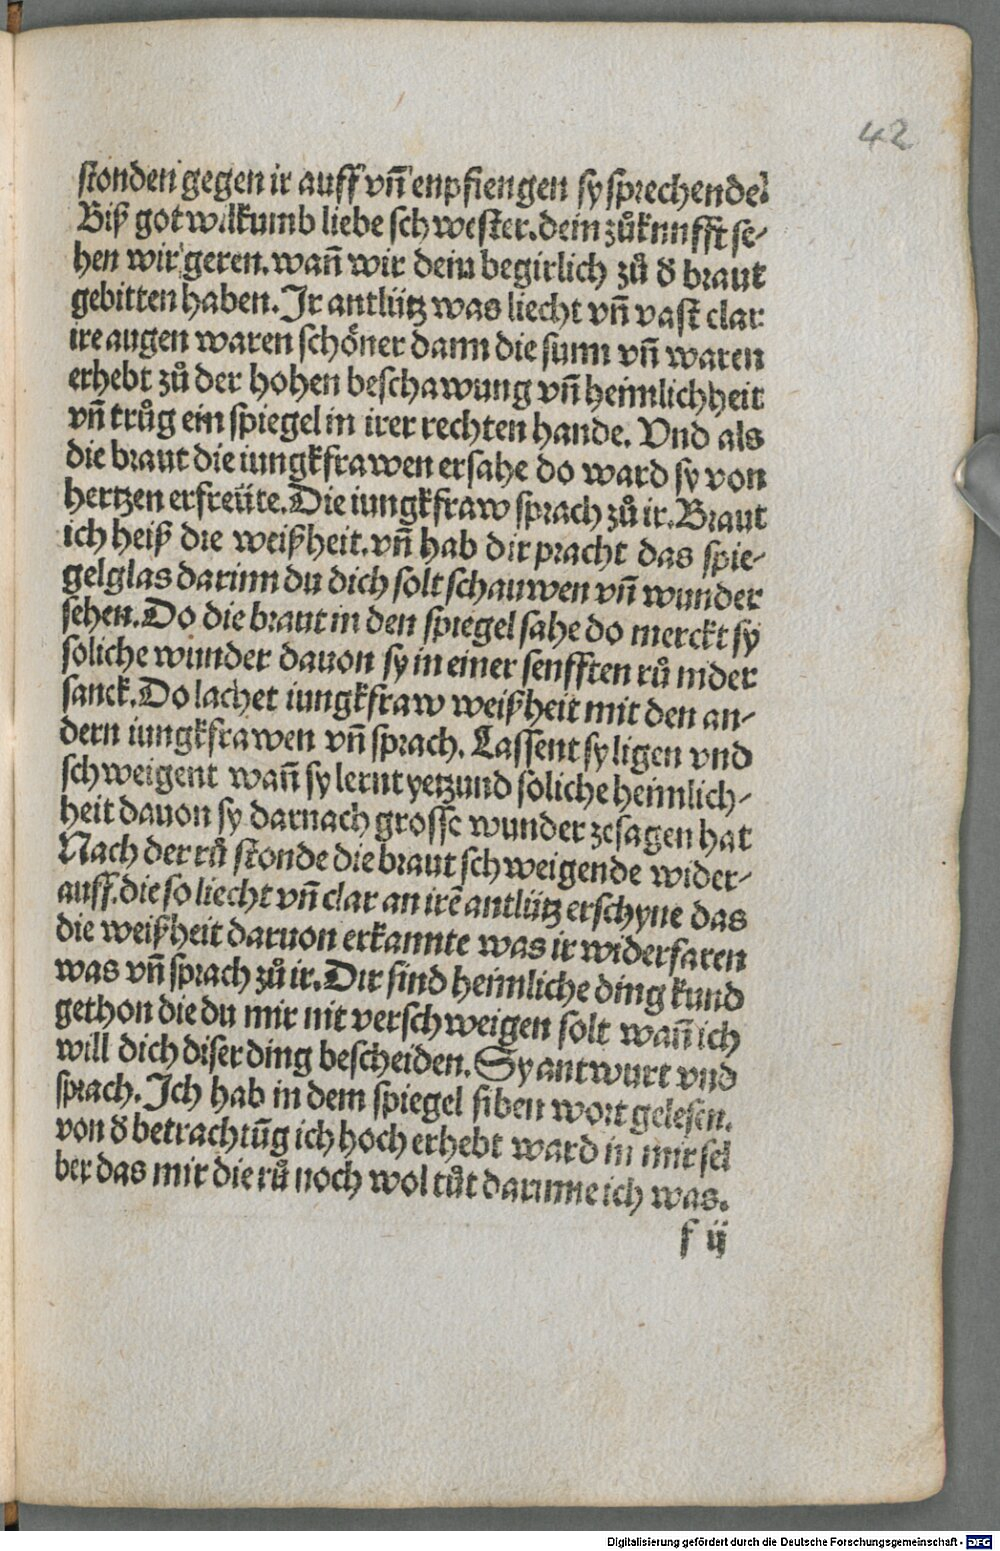 42
stonden gegen ir auff vnd̄ enpfiengen sy sprechende.
Biß got wilkumb liebe schwester. dein zůkunfft se-
hen wir geren. wañ wir dein begirlich zů d̕ braut
gebitten haben. Ir antlütz was liecht vñ vast clar
ire augen waren schöner dann die sunn vñ waren
erhebt zů der hohen beschawung vñ heimlichheit
vñ trůg ein spiegel in irer rechten hande. Vnd als
die braut die iungkfrawen ersahe do ward sy von
hertzen erfreüte. Die iungkfraw sprach zů ir. Braut
ich heiß die weißheit. vñ hab dir pracht das spie-
gelglas darinn du dich solt schauwen vñ wunder
sehen. Do die braut in den spiegel sahe do merckt sy
soliche wunder dauon sy in einer senfften rů nider
sanck. Do lachet iungkfraw weißheit mit den an-
dern iungkfrawen vñ sprach. Lassent sy ligen vnd
schweigent wañ sy lernt yetzund soliche heimlich-
heit dauon sy darnach grosse wunder zesagen hat
Nach der rů stonde die braut schweigende wider-
auff. die so liecht vñ clar an irē antlütz erschyne das
die weißheit daruon erkannte was ir widerfaren
was vñ sprach zů ir. Dir sind heimliche ding kund
gethon die du mir nit verschweigen solt wañ ich
will dich diser ding bescheiden. Sy antwurt vnd
sprach. Ich hab in dem spiegel siben wort gelesen.
von d̕ betrachtūg ich hoch erhebt ward in mir sel
ber das mir die rů noch wol tůt darinne ich was.
f ij
Digitalisierung gefördert durch die Deutsche Forschungsgemeinschaft - DFG